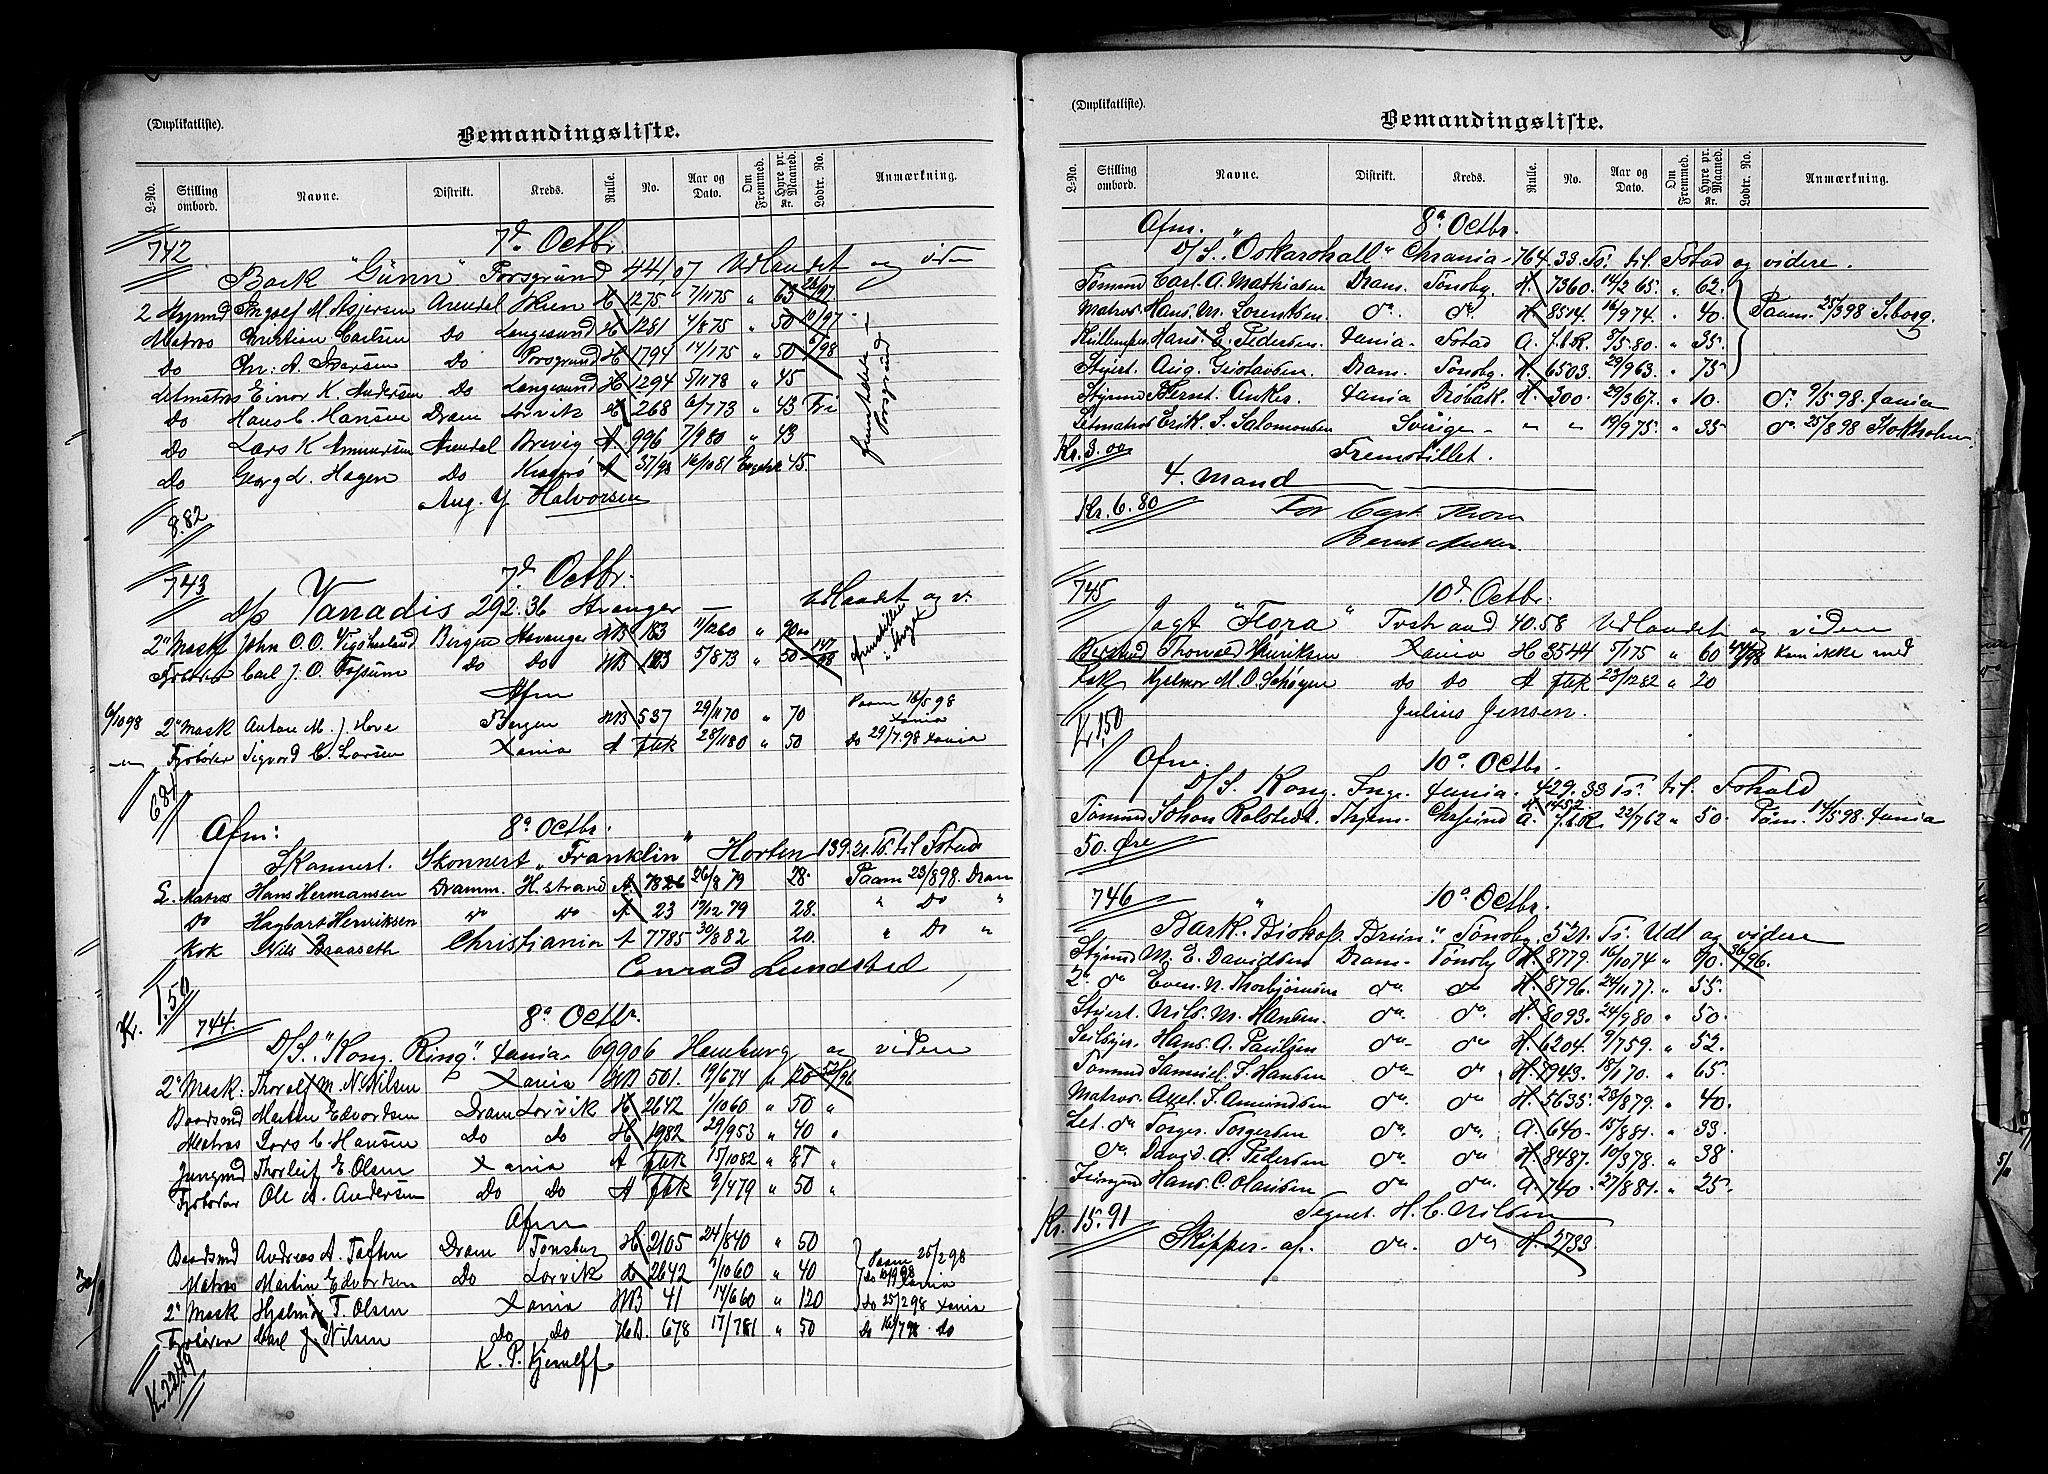 (Duplikatliste).
Bemandingsliste.
L-No. Stilling ombord. Navne. Distrikt. Kreds. Rulle. No. Aar og Dato. Om Fremmed. Hyre pr. Maaned. Kr. Lodtr. No. Anmærkning.
742 7d Octbr
Bark "Gunn" Porsgrund 441,07 Udlandet og viden
2 Stymd M. Asjersen Arendal Skien H 1275 7/1175 " 63
Matros Christian Carlsen Do Langesund H 1281 4/875 " 50 10/97
Do Chr: A. Iversen Do Porsgrund H 1794 14/175 " 50 6/98
Letmatros Einar K. Andersen Do Langesund H 1294 5/1178 " 45
Do Hans C. Hansen Dram Lorvik H 268 6/773 " 43 Fri
Do Lars K Amundsen Arendal Brevig A 996 7/980 " 43
Do Georg L. Hagen Do Kragerø A 37/98 16/1081 Engelsk 45
Aug. Y Halvorsen
8.82
743 7d Octbr.
D/s Vanadis 292.36 Stavanger — Udlandet og v.
2" Mask John O. O. Bergen Stavanger MB 183 11/1260 " 90
Fyrbøter Carl J. O. Do Do MB 123 5/873 " 50 14/98
Afm
6/1098 2" Mask Anton M. J Hove Bergen MB 537 29/1170 " 70 Paam 16/5 98 Xania
Fyrbøter Sigvard C. Larsen Xania A fbk 28/1180 " 50 Do 29/7.98 Xania
Afm: 8d Octbr.
Skonnert "Franklin" Horten 139.21 Ts. til Fstad
L. Matros Hans Hermansen Dramm. H.strand A. 7826 26/8 79 28. Paam 23/898. Dram
Do Hagbart Henriksen Do Do A 23 17/12 79 28. " Do "
Kok Nils Braaseth Christiania A 7785 30/882 20. " Do "
Conrad Lundsted
Kr. 1.50
744. 8d Octbr.
D/S. "Kong Ring" Xania 699 06 Hamburg og viden
2" Mask: Thoralf M. N. Nilsen Xania MB 501. 19/674 " 120 52/96
Baadsmd Martin Edvardsen Dram Lorvik H 2642 1/1060 " 50 "
Matros Lars C. Hansen Do Do H 1982 29/953 " 40 "
Jungmd Thorleif E. Olsen Xania A fbk 15/1082 "
Fyrbøter Ole A. Andersen Do Do A fbk 9/479 " 50 "
Afm
Baadsmd Andreas A. Toften Dram Tønsberg H 2105 24/840 " 50 Paam 25/2 98
Matros Martin Edvardsen Do Lorvik H 2642 1/1060 " 40 Do Xania
2" Mask Hjalmar T. Olsen Xania MB 41 14/660 " 120 Do 25/298 Xania
Fyrbøter Carl J. Nilsen Do Do MB. 678 17/781 " 50 Do 16/798 Do
K. P. Kjerulff
(Duplikatliste).
Bemandingsliste.
L-No. Stilling ombord. Navne. Distrikt. Kreds. Rulle. No. Aar og Dato. Om Fremmed. Hyre pr. Maaned. Kr. Lodtr. No. Anmærkning.
Afm. 8d Octbr.
D/S. "Oskarshall" Chrania 764.33. Ts. til Fstad og videre.
Tømmd Carl. A. Mathisen Dram. Tønsbg. H. 7360. 14/2 65. " 62.
Matros Hans. M. Lorentsen do. do. H. 8514. 16/974. " 40. Paam. 25/398 S.borg.
Hans. E. Pedersen. Xania. Fstad A. f.b.R. 8/5 80. " 35.
Stuert. Aug. Gustavsen. Dram. Tønsbg. H. 6503. 29/963. " 75
Stymd Bernt. Anker. Xania Drøbak. H. 300. 29/367. " 10. do. 9/5.98. Xania
Letmatros Erik. S. Salomonsen Sverige. " " 19/975. " 35 do 25/8 98 Stokholm
Kr. 3.00 Fremstillet.
4. Mand
Kr. 6.80 For Capt. Thom
Bernt Anker.
745 10d Octbr.
Jagt "Flora" Tvestrand 40.58 Udlandet og viden
Thorvald Henriksen Xania H 3544 5/175 " 60 Kom ikke med
Kok Hjalmar M. O. Do Do A fbk 23/1282 " 20
Julius Jensen.
Kr 1,50
Afm. 10d Octbr.
D/S. Kong. Inge. Xania. 429.33 Ts. til. Fshald
Tømmd Johan Rolstedt. Thjem. Chrsund A. f.b.R. 22/762 " 50. Paam. 14/5.98. Xania
50. Øre
746 10d Octbr.
Bark "Biskop. Brun". Tønsbg. 521. Ts. Udl. og videre
Stymd M. E. Davidsen Dram. Tønsbg H. 8779. 16/1074 " 90. 36/96.
2. do Even. N. Thorbjørnsen do do H. 8796. 24/1177. " 55.
Stuert. Nils. M. Hansen. do do. H. 8093. 24/980. " 50.
Seilskjer. Hans. A. Paulsen do do H. 6204. 9/759. " 52.
Tømmd Samuel. F. Hansen do do H. 7943. 18/170. " 65.
Matros. Axel. F. Amundsen do do. H. 5635. 28/879. " 40.
Let. do Torger. Torgersen do do. A. 640. 15/881. " 33.
do. David. A. Pedersen do do. H. 8487. 10/378. " 38.
Jungmd Hans. C. Hansen do do. A. 740. 27/881. " 25.
Tegnet. H. C. Nilsen
Kr. 15.91 Skipper. af. do. do H. 2733.